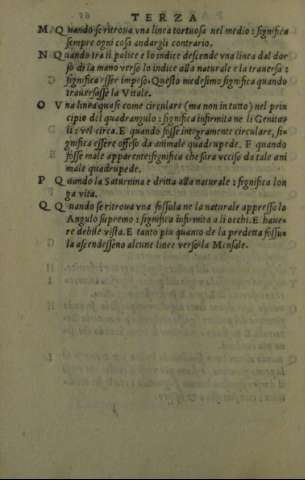 TERZA
M Quando se ritroua vna linea tortuosa nel medio: significa
sempre ogni cosa andargli contrario.
N Quando tra il police e lo indice descende vna linea dal dor
so de la mano verso lo indice alla naturale e la trauersa:
significa esser impeso. Questo medesimo significa quando
trauersasse la Vitale.
O Vna linea quase come circulare (ma non in tutto) nel prin
cipio del quadrangulo: significa infirmita ne li Genita
li: vel circa. E quando fosse integramente circulare, si
gnifica essere offeso da animale quadrupede. E quando
fosse male apparente significa che sera vcciso da tale ani
male quadrupede.
P Quando la Saturnina e dritta alla naturale: significa lon
ga vita.
Q Quando se ritroua vna fossula ne la naturale appresso lo
Angulo supremo: significa infirmita a li occhi. E haue
re debile vista. E tanto piu quanto de la predetta fossu
la ascendesseno alcune linee verso la Mensale.